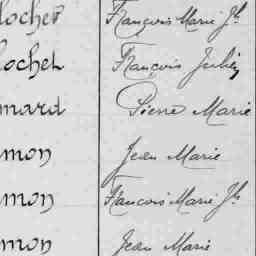 locher François Marie Jh
locher François Julien
mard Pierre Marie
mon Jean Marie
mon François Marie Jh
mon Jean Marie